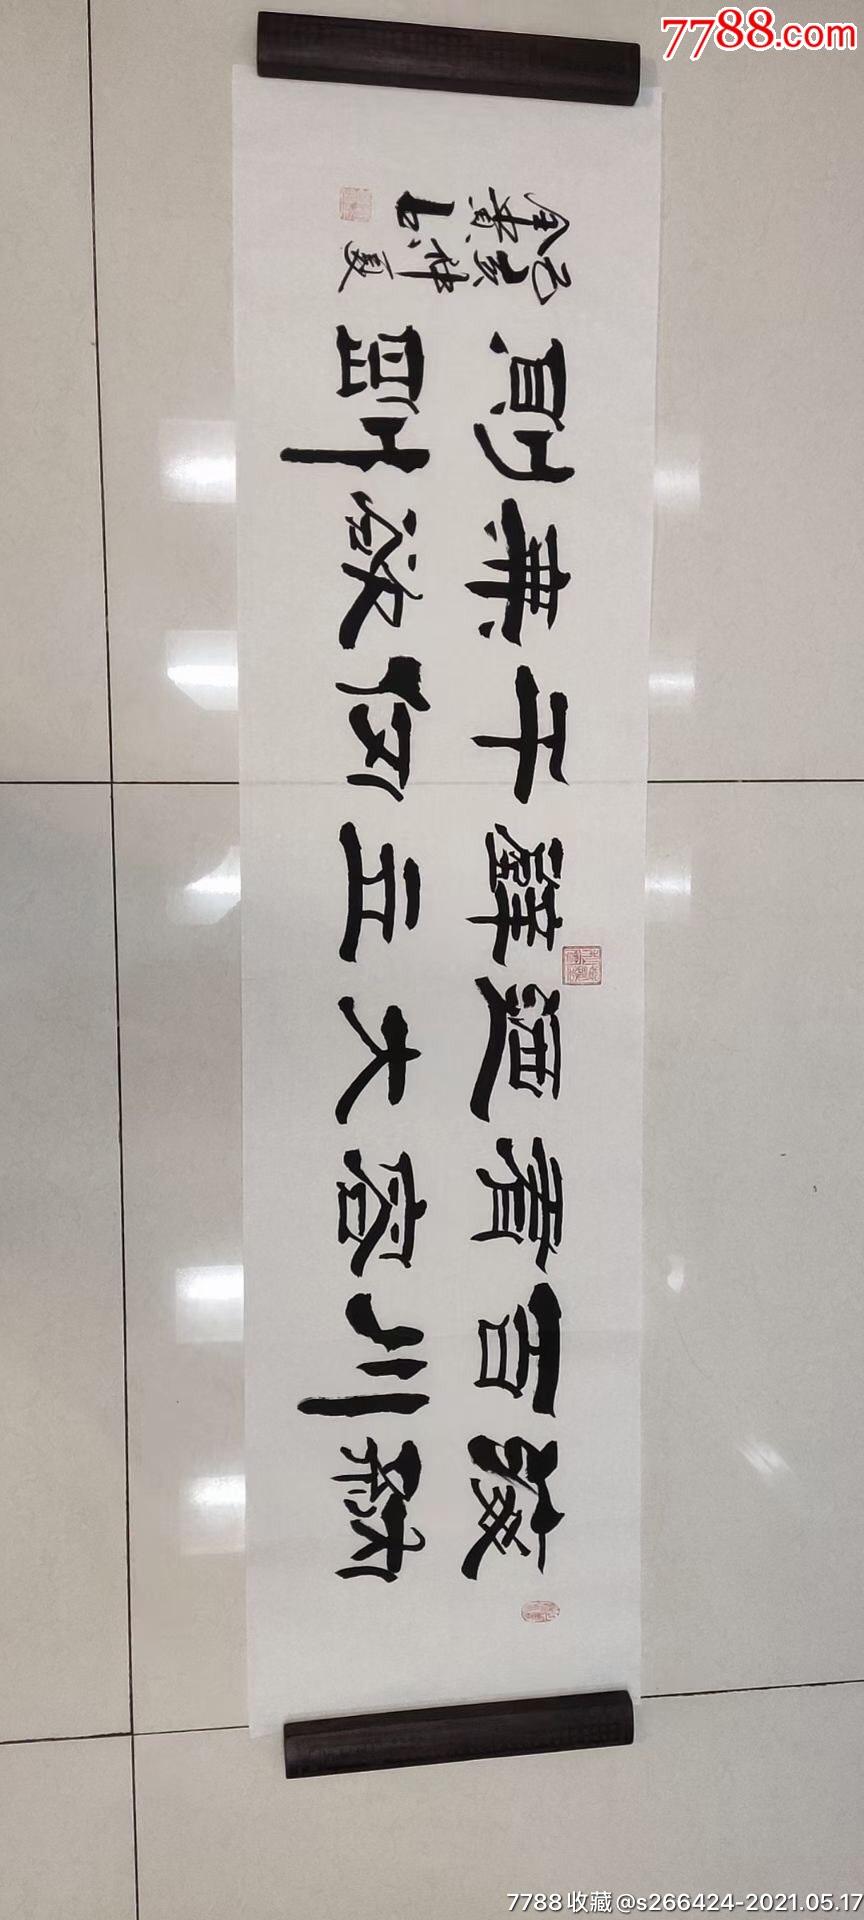 7788.com
海納
百川
有容
迺大
壁立
千仞
無欲
則剛
己亥仲夏
7788收藏@s266424-2021.05.17